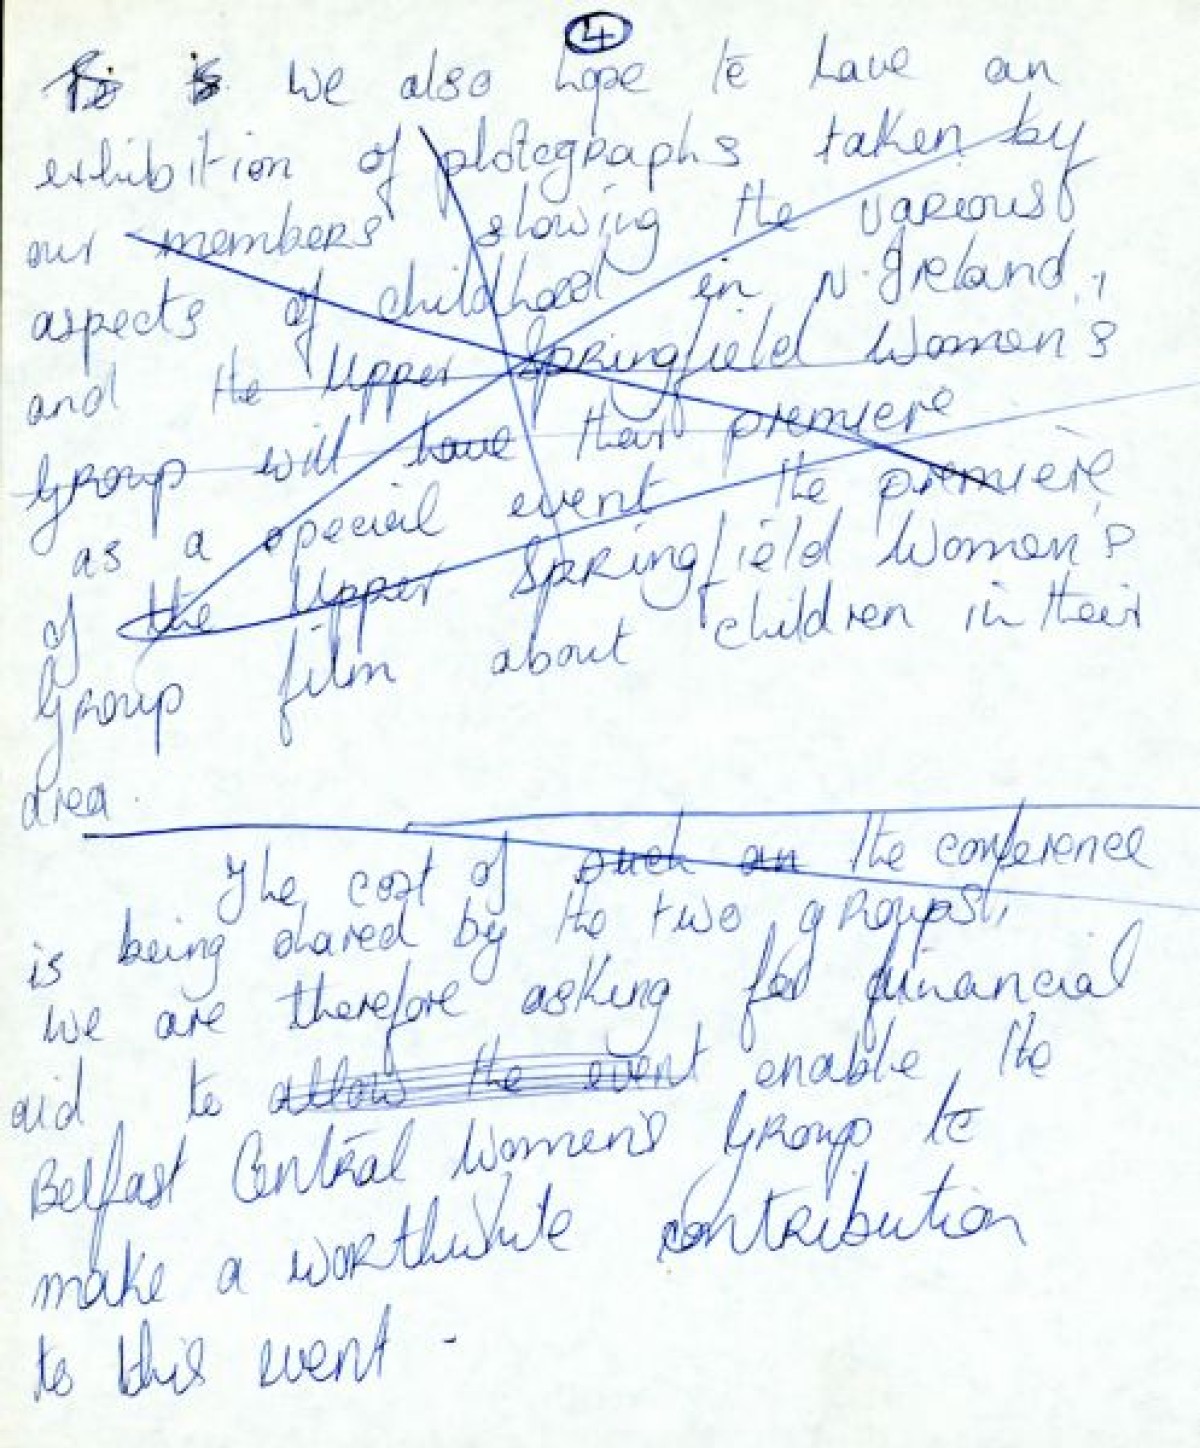 4
We also hope to have an
exhibition of photographs taken by
our members showing the various
aspects of childhood in N. Ireland,
and the Upper Springfield Women's
Group will have their premiere
as a special event the premiere
of the Upper Springfield Women's
Group film about children in their
area.
The cost of such an the conference
is being shared by the two groups,
we are therefore asking for financial
aid to allow the event enable the
Belfast Central Women's Group to
make a worthwhile contribution
to this event -